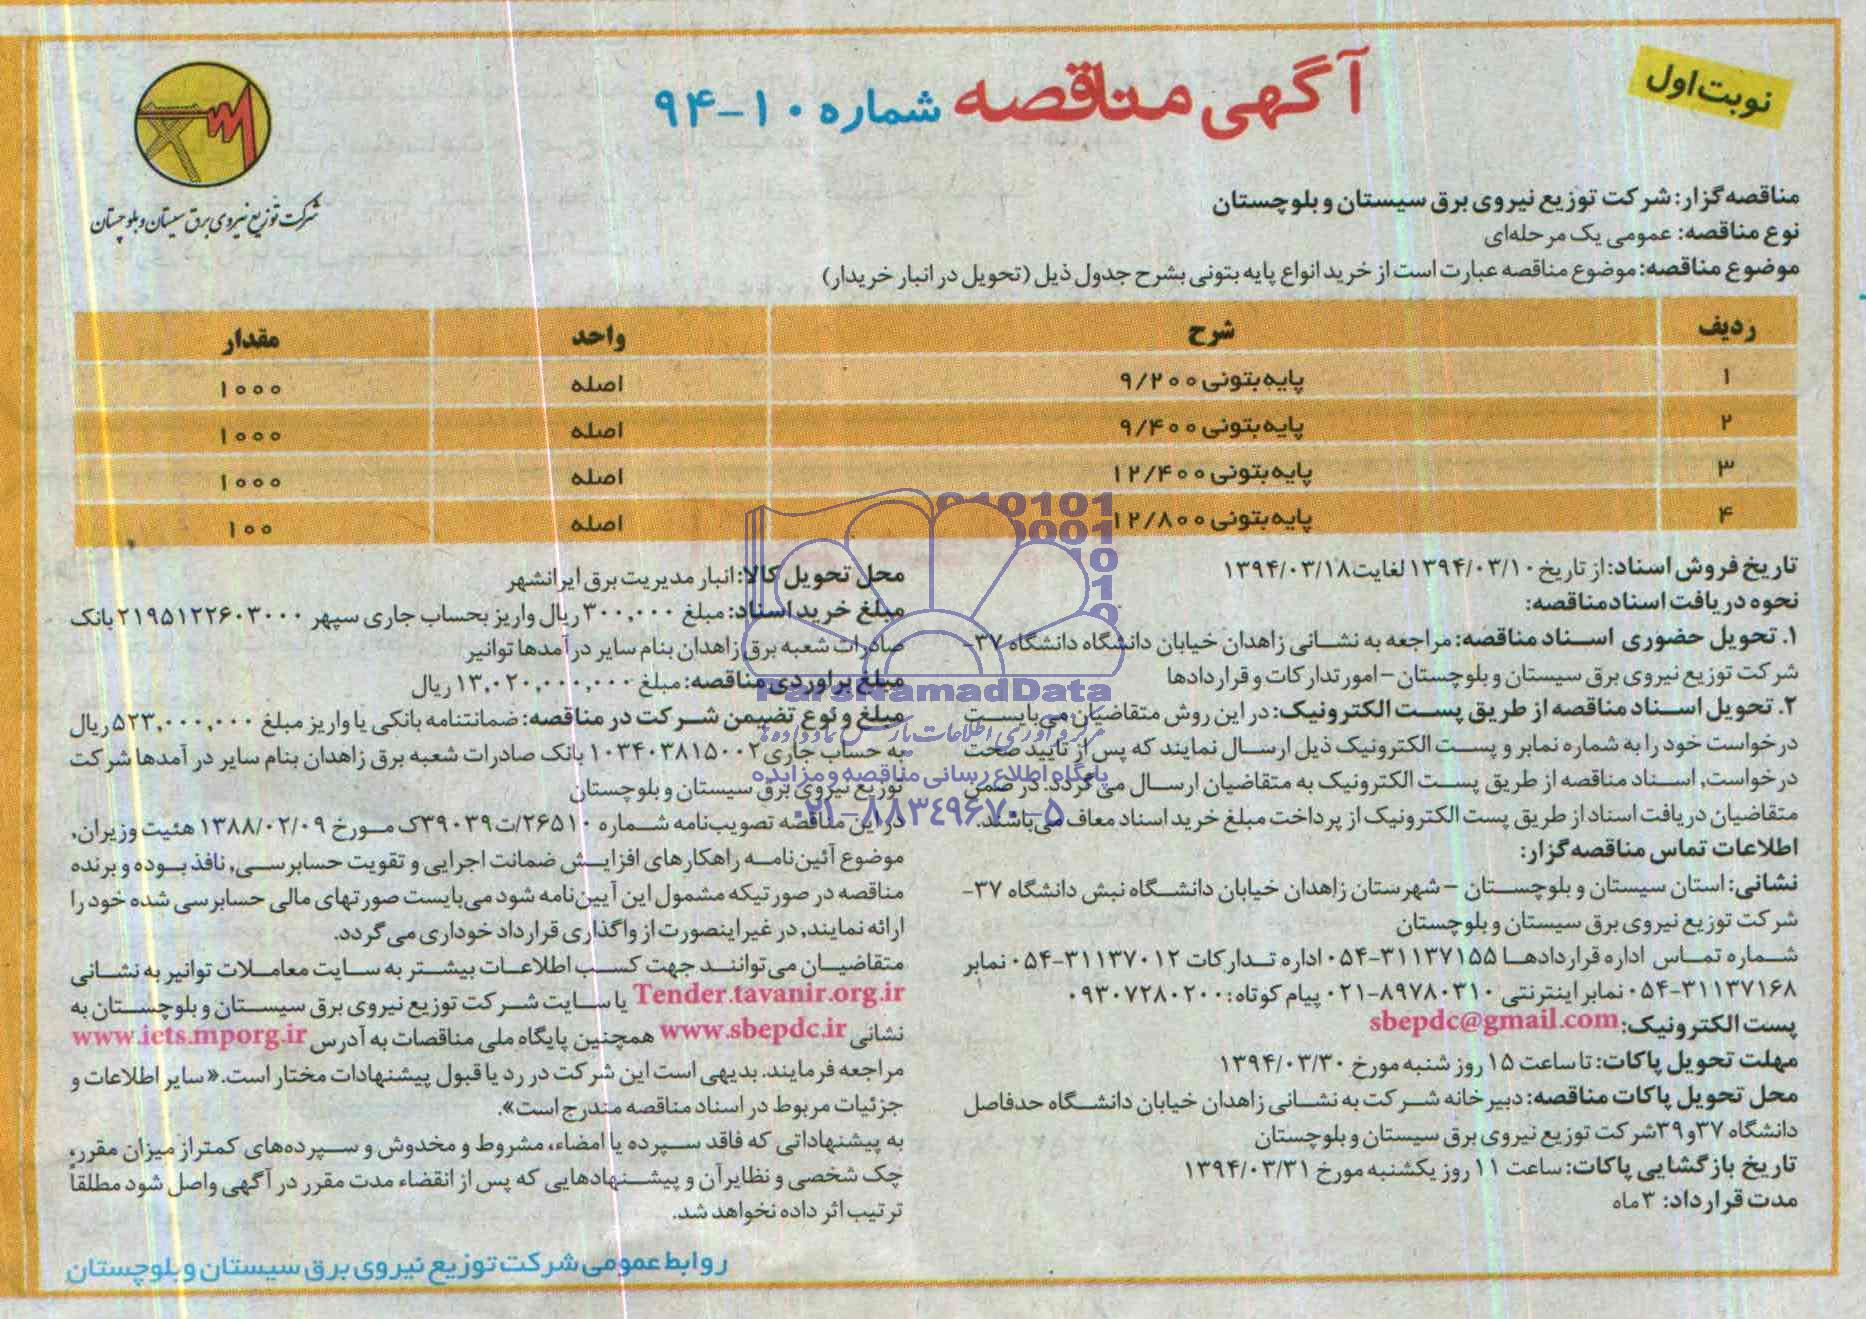 نوبت اول
آگهی مناقصه شماره ۱۰-۹۴
شرکت توزیع نیروی برق سیستان و بلوچستان
مناقصه گزار: شرکت توزیع نیروی برق سیستان و بلوچستان
نوع مناقصه: عمومی یک مرحله‌ای
موضوع مناقصه: موضوع مناقصه عبارت است از خرید انواع پایه بتونی بشرح جدول ذیل (تحویل در انبار خریدار)
ردیف شرح واحد مقدار
۱ پایه بتونی ۹/۲۰۰ اصله ۱۰۰۰
۲ پایه بتونی ۹/۴۰۰ اصله ۱۰۰۰
۳ پایه بتونی ۱۲/۴۰۰ اصله ۱۰۰۰
۴ پایه بتونی ۱۲/۸۰۰ اصله ۱۰۰
تاریخ فروش اسناد: از تاریخ ۱۳۹۴/۰۳/۱۰ لغایت ۱۳۹۴/۰۳/۱۸
نحوه دریافت اسناد مناقصه:
۱. تحویل حضوری اسناد مناقصه: مراجعه به نشانی زاهدان خیابان دانشگاه دانشگاه ۳۷-
شرکت توزیع نیروی برق سیستان و بلوچستان - امور تدارکات و قراردادها
۲. تحویل اسناد مناقصه از طریق پست الکترونیک: در این روش متقاضیان می‌بایست
درخواست خود را به شماره نمابر و پست الکترونیک ذیل ارسال نمایند که پس از تایید صحت
درخواست, اسناد مناقصه از طریق پست الکترونیک به متقاضیان ارسال می گردد. در ضمن
متقاضیان دریافت اسناد از طریق پست الکترونیک از پرداخت مبلغ خرید اسناد معاف می‌باشند.
اطلاعات تماس مناقصه گزار:
نشانی: استان سیستان و بلوچستان - شهرستان زاهدان خیابان دانشگاه نبش دانشگاه ۳۷-
شرکت توزیع نیروی برق سیستان و بلوچستان
شماره تماس اداره قراردادها ۳۱۱۳۷۱۵۵-۰۵۴ اداره تدارکات ۳۱۱۳۷۰۱۲-۰۵۴ نمابر
۳۱۱۳۷۱۶۸-۰۵۴ نمابر اینترنتی ۸۹۷۸۰۳۱۰-۰۲۱ پیام کوتاه: ۰۹۳۰۷۲۸۰۲۰۰
پست الکترونیک: sbepdc@gmail.com
مهلت تحویل پاکات: تا ساعت ۱۵ روز شنبه مورخ ۱۳۹۴/۰۳/۳۰
محل تحویل پاکات مناقصه: دبیرخانه شرکت به نشانی زاهدان خیابان دانشگاه حدفاصل
دانشگاه ۳۷ و ۳۹ شرکت توزیع نیروی برق سیستان و بلوچستان
تاریخ بازگشایی پاکات: ساعت ۱۱ روز یکشنبه مورخ ۱۳۹۴/۰۳/۳۱
مدت قرارداد: ۳ ماه
محل تحویل کالا: انبار مدیریت برق ایرانشهر
مبلغ خرید اسناد: مبلغ ۳۰۰,۰۰۰ ریال واریز بحساب جاری سپهر ۲۱۹۵۱۲۲۶۰۳۰۰۰ بانک
صادرات شعبه برق زاهدان بنام سایر درآمدها توانیر
مبلغ براوردی مناقصه: مبلغ ۱۳,۰۲۰,۰۰۰,۰۰۰ ریال
مبلغ و نوع تضیمن شرکت در مناقصه: ضمانتنامه بانکی یا واریز مبلغ ۵۲۳,۰۰۰,۰۰۰ ریال
به حساب جاری ۱۰۳۴۰۳۸۱۵۰۰۲ بانک صادرات شعبه برق زاهدان بنام سایر درآمدها شرکت
توزیع نیروی برق سیستان و بلوچستان
در این مناقصه تصویب‌نامه شماره ۲۶۵۱۰/ت۳۹۰۳۹ک مورخ ۱۳۸۸/۰۲/۰۹ هئیت وزیران,
موضوع آئین‌نامه راهکارهای افزایش ضمانت اجرایی و تقویت حسابرسی, نافذ بوده و برنده
مناقصه در صورتیکه مشمول این آیین‌نامه شود می‌بایست صورتهای مالی حسابرسی شده خود را
ارائه نمایند, در غیر اینصورت از واگذاری قرارداد خوداری می گردد.
متقاضیان می‌توانند جهت کسب اطلاعات بیشتر به سایت معاملات توانیر به نشانی
Tender.tavanir.org.ir یا سایت شرکت توزیع نیروی برق سیستان و بلوچستان به
نشانی www.sbepdc.ir همچنین پایگاه ملی مناقصات به آدرس www.iets.mporg.ir
مراجعه فرمایند. بدیهی است این شرکت در رد یا قبول پیشنهادات مختار است.«سایر اطلاعات و
جزئیات مربوط در اسناد مناقصه مندرج است».
به پیشنهاداتی که فاقد سپرده یا امضاء، مشروط و مخدوش و سپرده‌های کمتر از میزان مقرر،
چک شخصی و نظایر آن و پیشنهادهایی که پس از انقضاء مدت مقرر در آگهی واصل شود مطلقاً
ترتیب اثر داده نخواهد شد.
روابط عمومی شرکت توزیع نیروی برق سیستان و بلوچستان
ParsNamadData
پایگاه اطلاع رسانی مناقصه و مزایده
۰۲۱-۸۸۳۴۹۶۷۰-۵